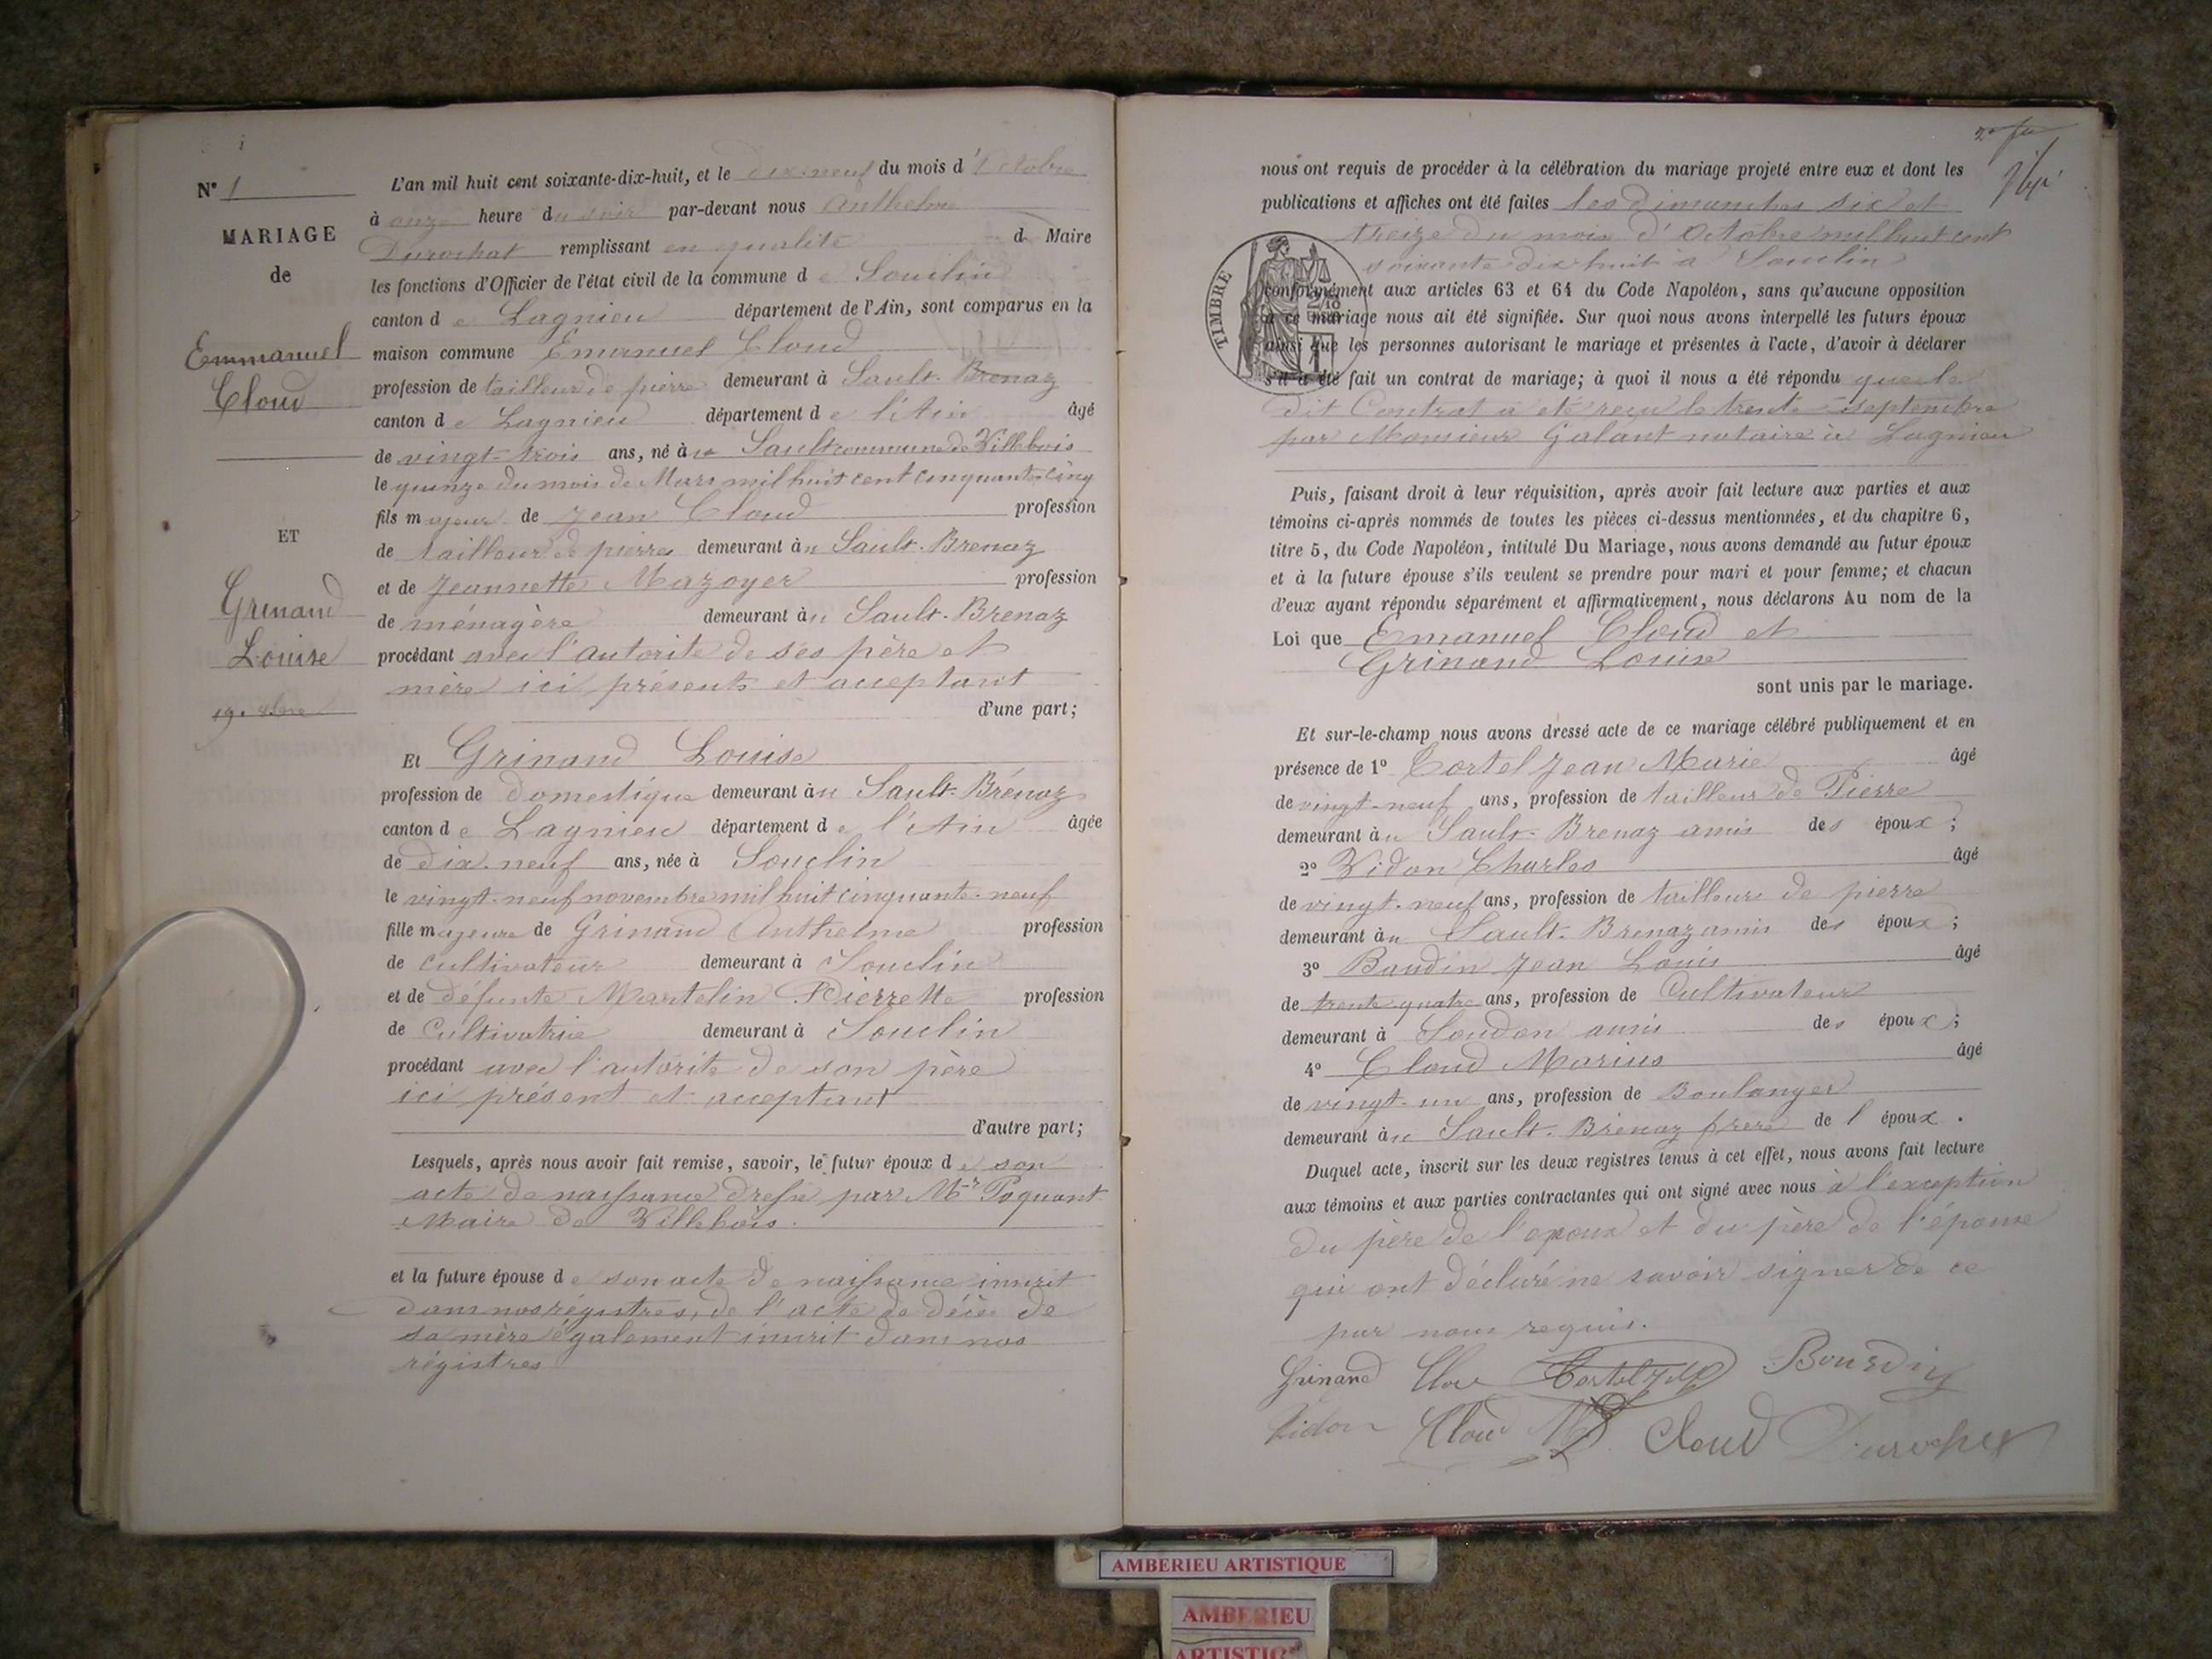 N° 1
MARIAGE
de
Emmanuel
Cloud
ET
Grinand
Louise
19. 8bre
L'an mil huit cent soixante-dix-huit, et le dix-neuf du mois d'Octobre
à onze heure du soir par-devant nous Anthelme
Durochat remplissant en qualité de Maire
les fonctions d'Officier de l'état civil de la commune de Souclin
canton de Lagnieu département de l'Ain, sont comparus en la
maison commune Emanuel Cloud
profession de tailleur de pierre demeurant à Sault-Brenaz
canton de Lagnieu département de l'Ain âgé
de vingt-trois ans, né à Sault commune de Villebois
le quinze du mois de Mars mil huit cent cinquante-cinq
fils majeur de Jean Cloud profession
de tailleur de pierres demeurant à Sault-Brenaz
et de Jeannette Mazoyer profession
de ménagère demeurant à Sault-Brenaz
procédant avec l'autorité de ses père et
mère ici présents et acceptant
d'une part;
Et Grinand Louise
profession de Domestique demeurant à Sault-Brénaz
canton de Lagnieu département de l'Ain âgée
de dix-neuf ans, née à Souclin
le vingt-neuf novembre mil huit cinquante-neuf
fille majeure de Grinand Anthelme profession
de cultivateur demeurant à Souclin
et de défunte Martelin Pierrette profession
de Cultivatrice demeurant à Souclin
procédant avec l'autorité de son père
ici présent et acceptant
d'autre part;
Lesquels, après nous avoir fait remise, savoir, le futur époux de son
acte de naissance dressé par Mr Poquant
Maire de Villebois.
et la future épouse de son acte de naissance inscrit
dans nos régistres, de l'acte de décès de
sa mère également inscrit dans nos
régistres
nous ont requis de procéder à la célébration du mariage projeté entre eux et dont les
publications et affiches ont été faites les Dimanches six et
treize du mois d'Octobre mil huit cent
soixante-dix-huit à Souclin
TIMBRE
conformément aux articles 63 et 64 du Code Napoléon, sans qu'aucune opposition
à ce mariage nous ait été signifiée. Sur quoi nous avons interpellé les futurs époux
ainsi que les personnes autorisant le mariage et présentes à l'acte, d'avoir à déclarer
s'il a été fait un contrat de mariage; à quoi il nous a été répondu que le
dit Contrat a été reçu le trente septembre
par Monsieur Galant notaire à Lagnieu
Puis, faisant droit à leur réquisition, après avoir fait lecture aux parties et aux
témoins ci-après nommés de toutes les pièces ci-dessus mentionnées, et du chapitre 6,
titre 5, du Code Napoléon, intitulé Du Mariage, nous avons demandé au futur époux
et à la future épouse s'ils veulent se prendre pour mari et pour femme; et chacun
d'eux ayant répondu séparément et affirmativement, nous déclarons Au nom de la
Loi que Emanuel Cloud et
Grinand Louise
sont unis par le mariage.
Et sur-le-champ nous avons dressé acte de ce mariage célébré publiquement et en
présence de 1° Cortel Jean Marie âgé
de vingt-neuf ans, profession de tailleur de Pierre
demeurant à Sault-Brenaz amis des époux;
2° Vidon Charles âgé
de vingt-neuf ans, profession de tailleur de pierre
demeurant à Sault-Brenaz amis des époux;
3° Baudin Jean Louis âgé
de trente quatre ans, profession de Cultivateur
demeurant à Soudon amis des époux;
4° Cloud Marius âgé
de vingt-un ans, profession de Boulanger
demeurant à Sault-Brénaz frère de l'époux.
Duquel acte, inscrit sur les deux registres tenus à cet effet, nous avons fait lecture
aux témoins et aux parties contractantes qui ont signé avec nous à l'exception
du père de l'époux et du père de l'épouse
qui ont déclaré ne savoir signer de ce
par nous requis.
Grinand Cortel Bourdin
Vidon Cloud Cloud Durochat
AMBERIEU ARTISTIQUE
AMBERIEU
ARTISTIQ